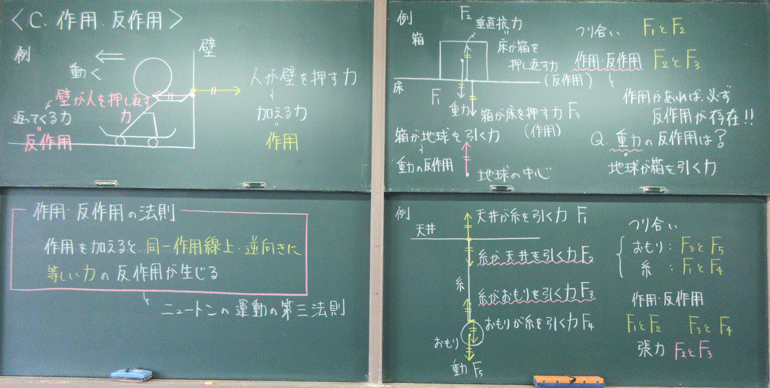 〈C. 作用・反作用〉
例
壁
動く
人が壁を押す力
壁が人を押し返す力
返ってくる力
加える力
反作用
作用
作用・反作用の法則
作用を加えると、同一作用線上・逆向きに
等しい力の反作用が生じる
ニュートンの運動の第三法則
例
F₂
垂直抗力
つり合い F₁とF₂
箱
床が箱を
押し返す力
(反作用)
作用・反作用 F₂とF₃
床
F₁
重力
箱が床を押す力 F₃
(作用)
作用があれば、必ず
反作用が存在!!
箱が地球を引く力
重力の反作用
地球の中心
Q. 重力の反作用は?
地球が箱を引く力
例
天井が糸を引く力 F₁
天井
糸が天井を引く力 F₂
糸
糸がおもりを引く力 F₃
おもりが糸を引く力 F₄
おもり
F₅
つり合い
おもり:F₃とF₅
糸:F₁とF₄
作用・反作用
F₁とF₂ F₃とF₄
張力 F₂とF₃